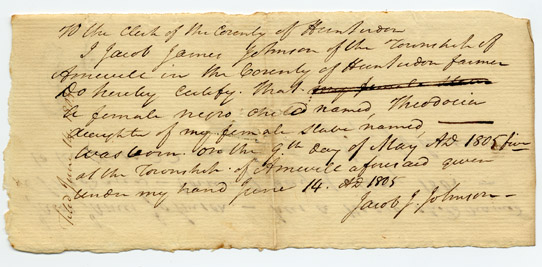 To the Clerk of the County of Hunterdon
I Jacob James Johnson of the Township of
Amwell in the County of Hunterdon farmer
Do hereby certify. that
a female negro child named, Theodocia
daughter of my female slave named,
was born. on the 9th day of May AD 1805 five
at the Township of Amwell aforesaid given
under my hand June 14. AD 1805
Jacob J. Johnson
filed June